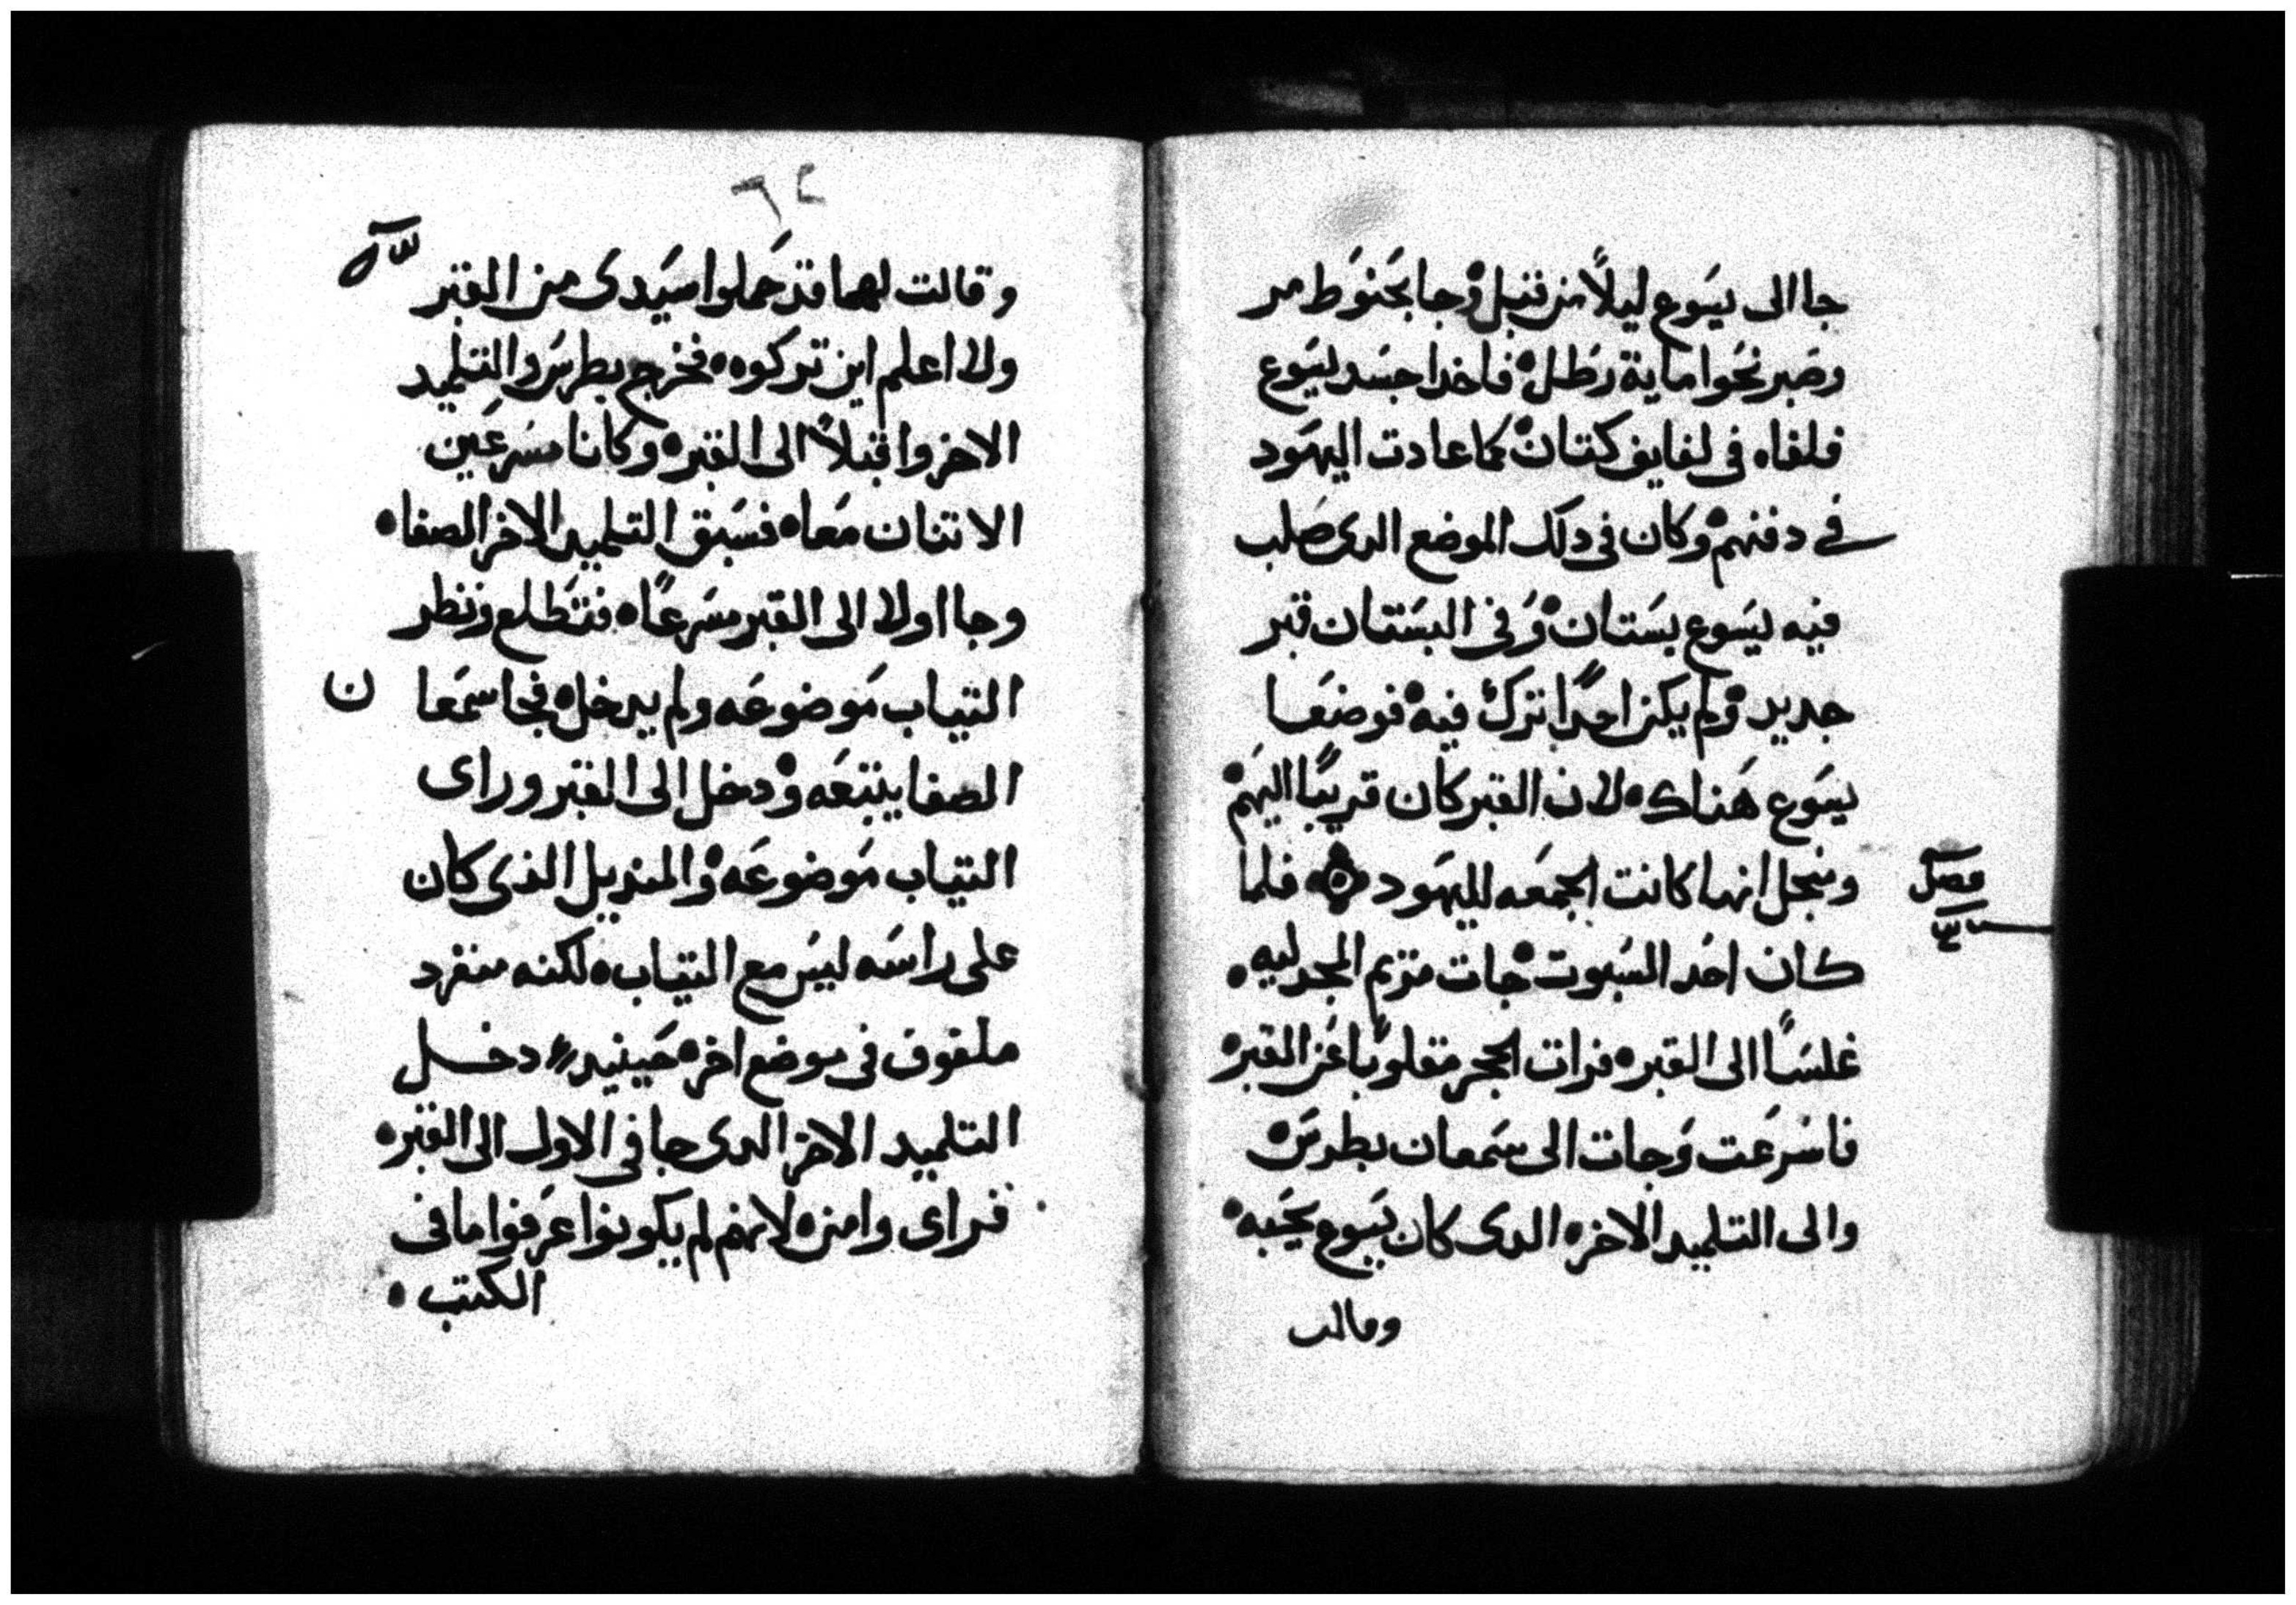 جا الى يسَوع ليلاً من قبل وجا بحَنوَط مر
وصَبر نحَوا ماية رَطل فاخدا جسَد يسَوع
فلفاه فى لفايف كتان كما عادت اليهَود
في دفنهم وكان فى دلك الموضع الدى صَلب
فيه يسَوع بسَتان وَفى البسَتان قبر
جديد ولم يكن احدًا ترك فيه فوضعَا
يسَوع هَناك لان القبر كان قريبًا اليهَم
ومنجل انها كانت الجمعَه لليهَود فلما
فصل
كان احَد السَبوت جات مريم المجدليه
غلسَاً الى القبر فرات الحجر مقلوبًا عَن القبر
فاسَرعَت وَجات الى سَمعان بطرسَ
والى التلميد الاخر الدى كان يسَوع يحَبه
وقالت
٦٢
وقالت لهما قد حَملوا سيَدى من القبر
ولا اعلم اين تركوه فخرج بطرسَ والتلميد
الاخر واقبلاً الى القبر وكانا مسَرعَين
الاتنان معَا فسَبق التلميد الاخر الصفا
وجا اولا الى القبر مسَرعًا فتطَلع ونظر
التياب مَوضوعَه ولم يدخل فجا سمعَا
ن
الصفا يتبعَه ودخل الى القبر وراى
التياب مَوضوعَه والمنديل الذى كان
على راسَه ليسَ مع التياب لكنه منفرد
ملفوف فى موضع اخر حَينيد دخل
التلميد الاخر الدى جا فى الاول الى القبر
فراى وامن لانهم لم يكونوا عَرفوا ما فى
الكتب